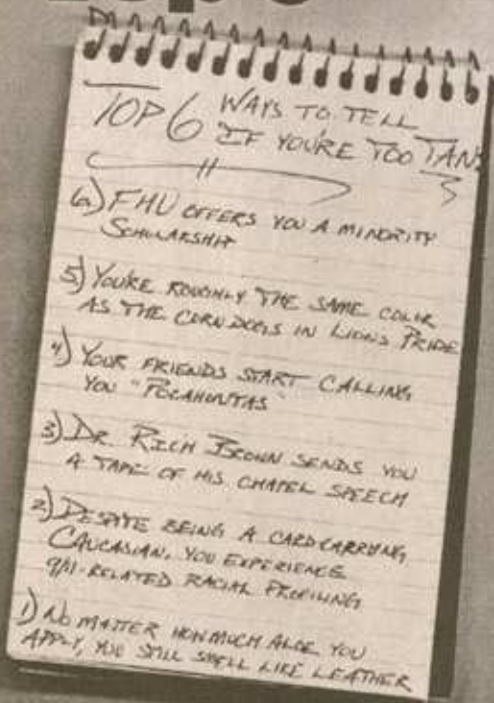 TOP 6 WAYS TO TELL
IF YOU'RE TOO TAN:
6) FHU OFFERS YOU A MINORITY
SCHOLARSHIP
5) YOU'RE ROUGHLY THE SAME COLOR
AS THE CORNDOGS IN LIONS PRIDE
4) YOUR FRIENDS START CALLING
YOU "POCAHONTAS"
3) DR. RICH BROWN SENDS YOU
A TAPE OF HIS CHAPEL SPEECH
2) DESPITE BEING A CARD CARRYING
CAUCASIAN, YOU EXPERIENCE
9/11-RELATED RACIAL PROFILING
1) NO MATTER HOW MUCH ALOE YOU
APPLY, YOU STILL SMELL LIKE LEATHER